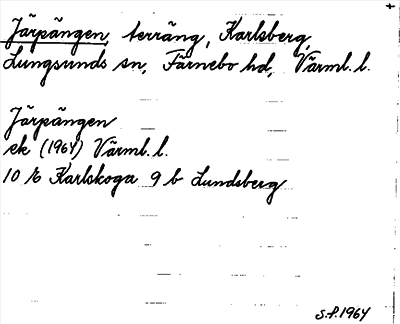 Järpängen, terräng, Karlsberg,
Lungsunds sn, Färnebo hd, Värml. l.
Järpängen
ek (1964) Värml. l.
10 E Karlskoga 9 b Lundsberg
S.P. 1964